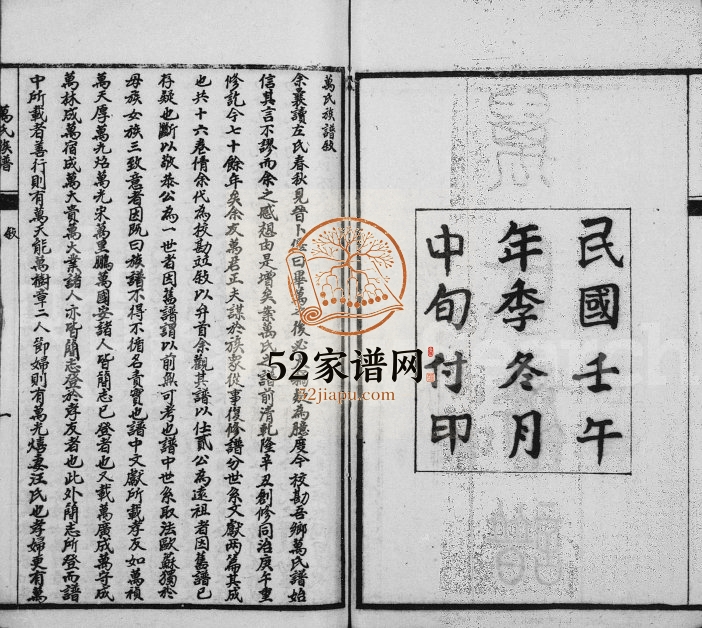 民國壬午
年季冬月
中旬付印
萬氏族譜敘
余曩讀左氏春秋見晉卜偃曰畢萬之後必為臆度今校勘吾鄉萬氏譜始
信其言不謬而余之感想由是增矣業萬氏之譜前清乾隆辛丑創修同治庚午重
修訖今七十餘年矣余友萬君正夫謀於族眾從事復修譜分世系文獻兩篇其成
也共十六卷倩余代為校勘並敘以弁首余觀其譜以仕貳公為遠祖者因舊譜已
存疑也斷以敬泰公為一世者因舊譜謂以前無可考也譜中世系取法歐蘇獨於
母族女族三致意者因既曰族譜不得不循名責實也譜中文獻所載孝友如萬禎
萬天厚萬光炤萬光宋萬里鵬萬國安諸人皆簡志已登者也又載萬廣成萬守成
萬林成萬宿成萬大貴萬大業諸人亦皆簡志登於孝友者也此外簡志所登而譜
中所載者善行則有萬天能萬樹章二人節婦則有萬光熺妻汪氏也孝婦更有萬
萬氏族譜
敘
一
52家谱网
52jiapu.com